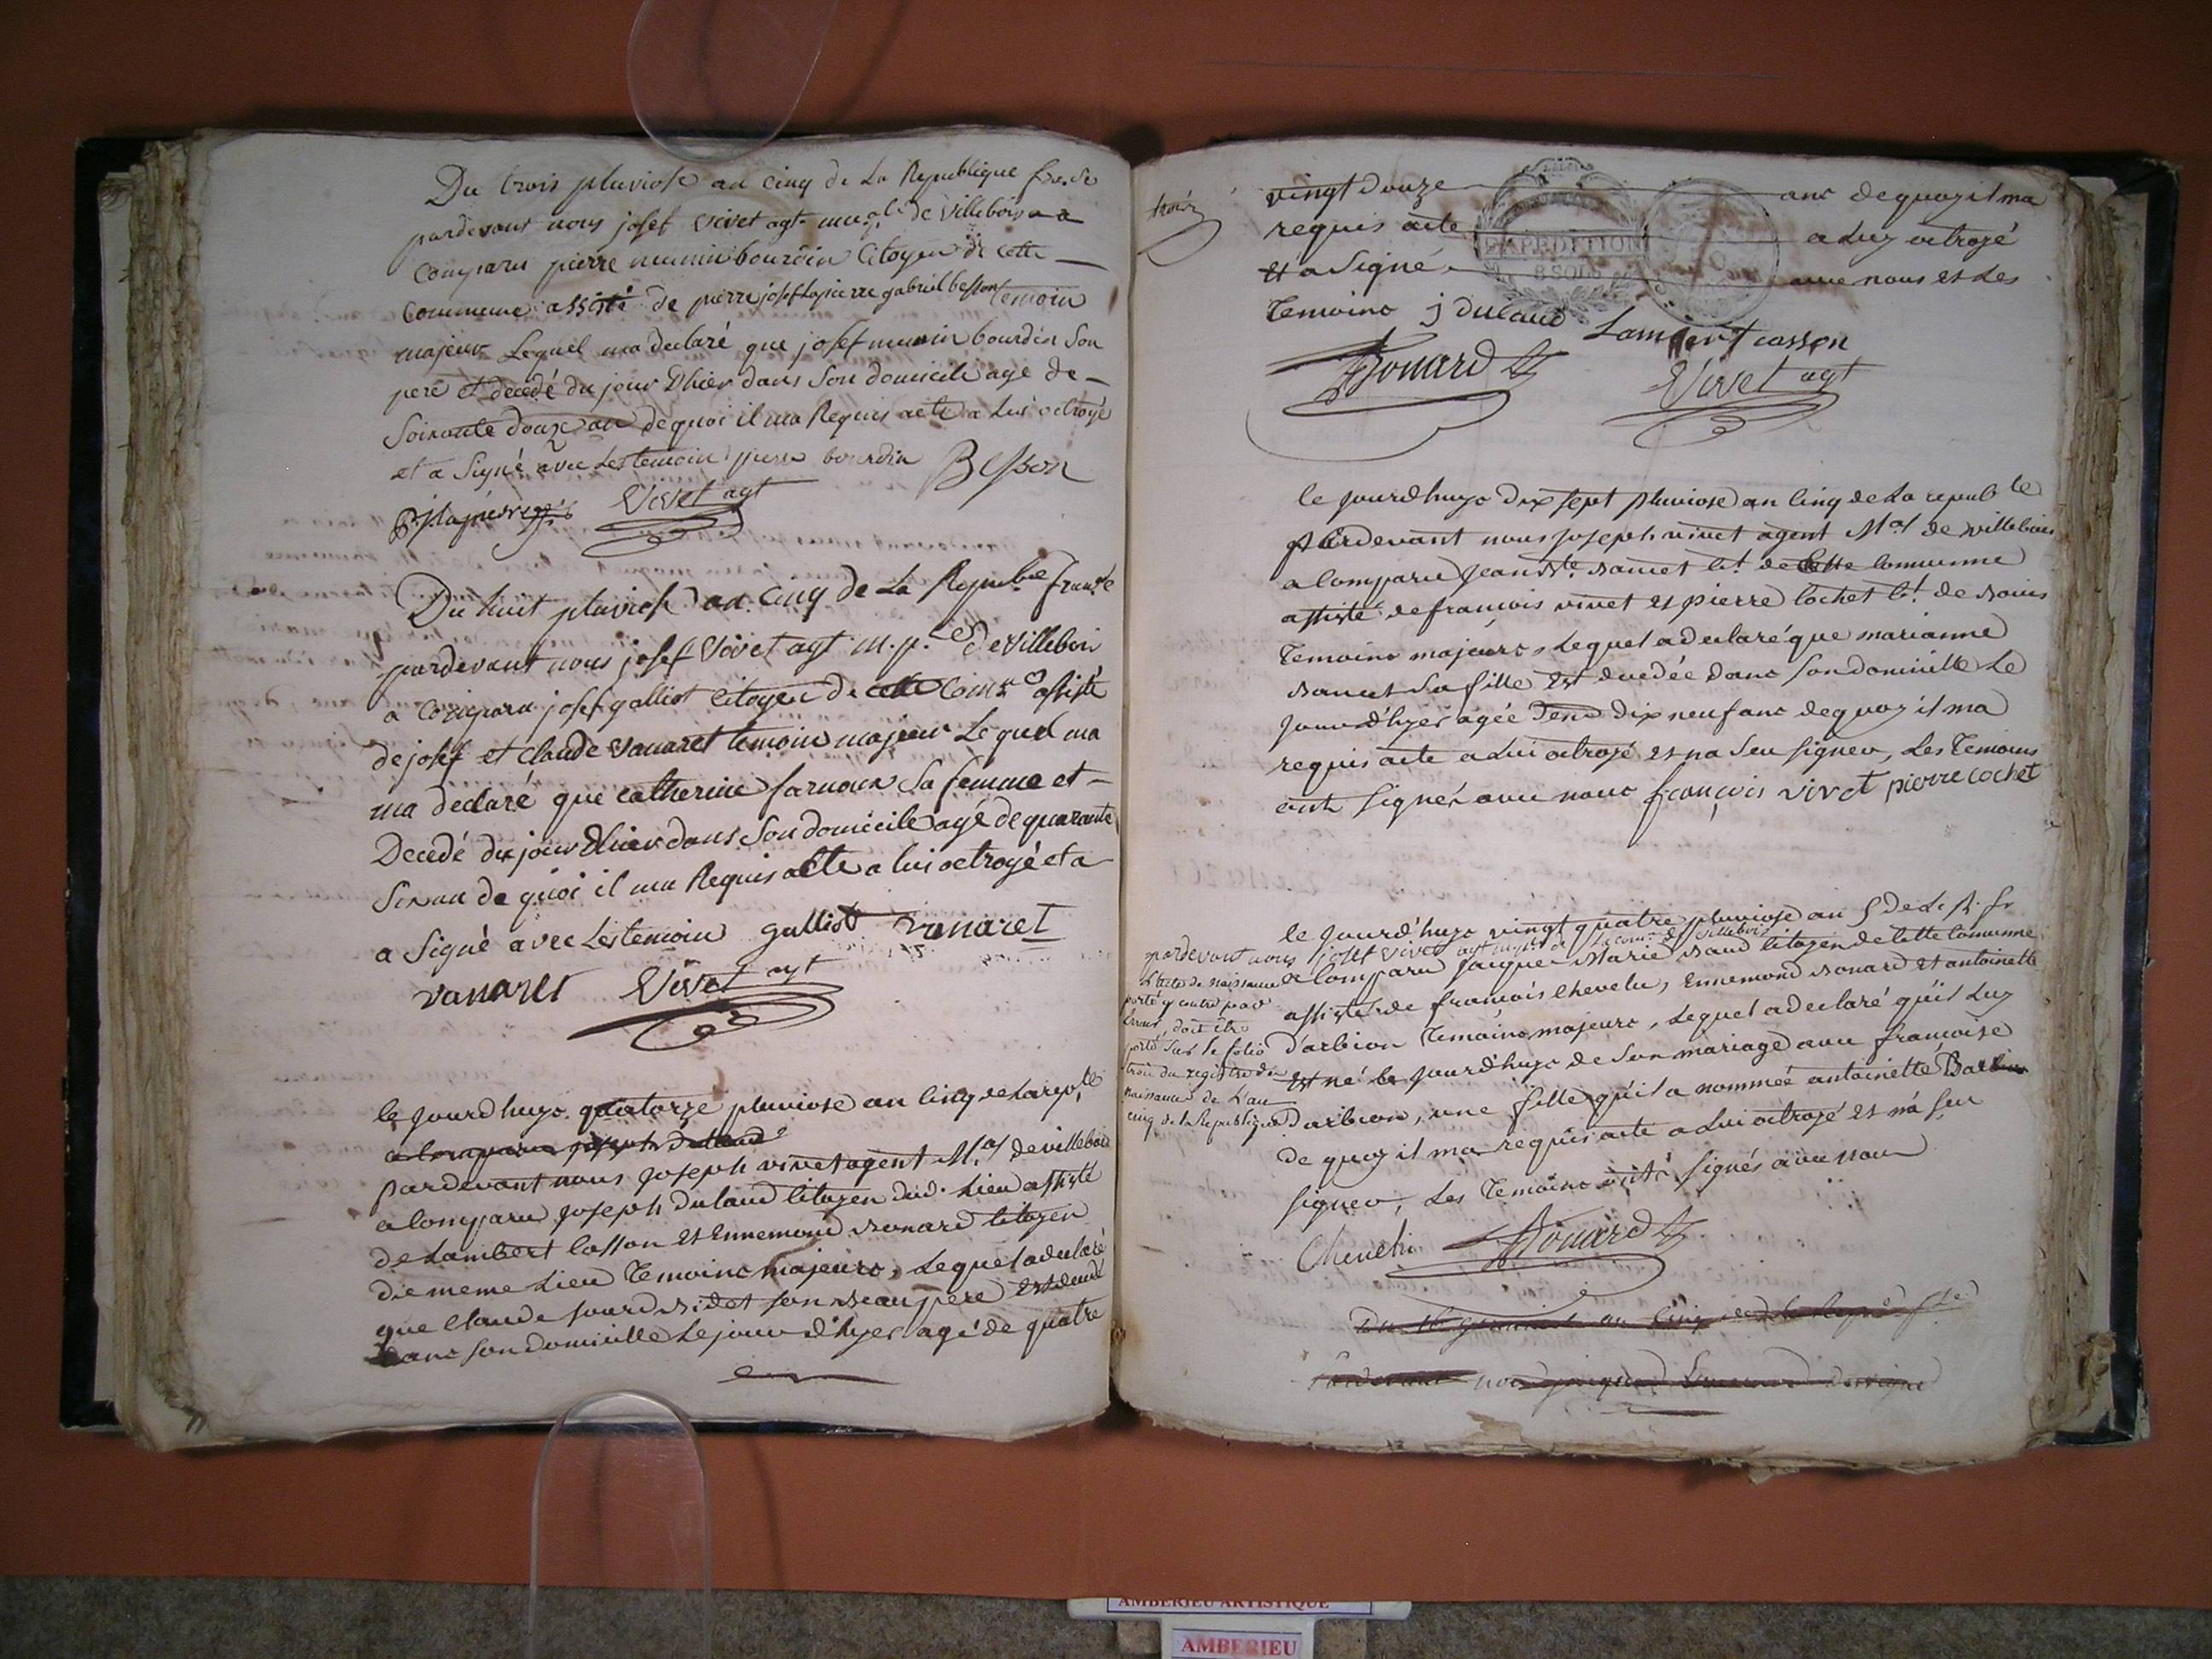 Du trois pluviose an cinq de La Republique fra.se
pardevant nous josef vivet agt. mu.al de villebois a
comparu pierre mumin bourdin Citoyen de cette
commune assisté de pierre josef Lapierre gabriel besson temoin
majeur Lequel ma declaré que josef mumin bourdin Son
pere et decedé du jour Dhier dans Son domicile agé de
Soixante douze an de quoi il ma Requis acte a Lui octroyé
et a Signé avec Les temoin pierre bourdin Besson
Vivet agt
Du huit pluviose an cinq de La Repube franse
pardevant nous josef Vivet agt m.p.e de villeboi
a comparu josef galliot Citoyen de cette Comne assisté
de josef et Claude vanaret temoin majeur Le quel ma
ma declaré que catherine farnoux Sa femme et
Decedé du jour Dhier dans Son domicile agé de quarante
Six an de quoi il ma Requis acte a lui octroyé et a
a Signé avec Les temoin galliot vanaret
vanaret Vivet agt
le jourd'huyc quatorze pluviose an cinq de la repte
a comparu joseph dulaud
pardevant nous joseph vivet agent M.al de villebois
a comparu joseph dulaud Citoyen dud. Lieu assisté
de Lambert Casson et Ennemond Bonard Citoyen
die meme Lieu Temoinc majeurc, Lequel a declaré
que Claude jourd Bidet son Beau pere est decedé
danc son domicille Le jour d'hyer agé de quatre
trois
vingt douze anc de quoy il ma
requis acte a Luy octroyé
et a Signé avec nous et Les
Temoinc j dulaud Lambert casson
Bonard Vivet agt
le jourd'huyc dix sept pluviose an cinq de La republe
pardevant nous joseph vivet agent M.al de villebois
a comparu jean Bte. Banet Ct. de Cette commune
assisté de francois vivet et pierre Cochet Ct. de Bouis
Temoinc majeurc, Lequel a declaré que marianne
Banet Sa fille est decedée danc Son domicille Le
jour d'hyer agée denv dix neuf anc de quoy il ma
requis acte a Lui octroyé et na Seu signer, Les Temoins
ont signés avec nouc françois vivet pierre cochet
le jourd'huyc vingt quatre pluviose an 5 de L. R. fr
pardevant nous josef vivet agt mupal de La comne de villebois
a comparu jacque Marie Baud Citoyen de Cette Commune
assisté de françois Chevelu, Ennemond Bonard et antoinette
d'arbion Temoinc majeurc, Lequel a declaré qu'il Luy
est né le jourd'huyc de Son mariage avec francoise
Darbion, une fille qu'il a nommée antoinette
de quoy il ma requis acte a Lui octroyé et n'a seu
signer, Les Temoinc ont signés avec nouc
L'acte de naissance
porté y contre par
Erreur, doit être
porté sur le folio
trois du registre de
naissance de L'an
cinq de la Republique
Chevelu Bonard